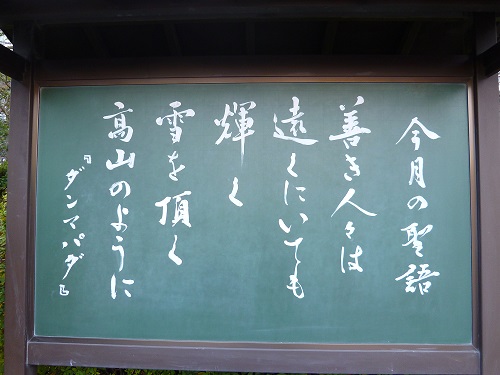 今月の聖語
善き人々は
遠くにいても
輝く
雪を頂く
高山のように
『ダンマパダ』